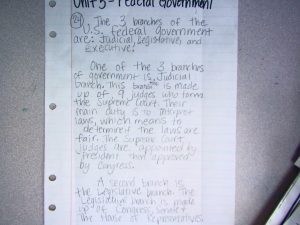 Unit 5 - Federal Government
24) The 3 branches of the
U.S. federal government
are: Judicial, Legislative, and
Executive.
One of the 3 branches
of government is Judicial
branch. This branch is made
up of 9 judges who form
the Supreme Court. Their
main duty is to interpret
laws, which means to
determine if the laws are
fair. The Supreme Court
judges are appointed by
president then approved
by Congress.
A second branch is
the Legislative branch. The
Legislative branch is made
up of Congress, Senate
The House of Representatives.